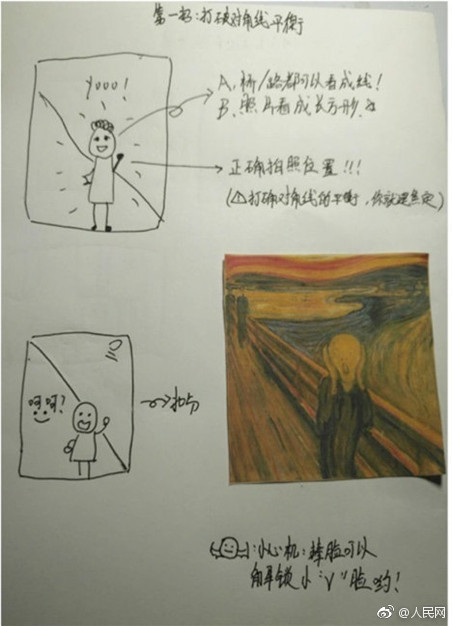 第一招：打破对角线平衡
yooo！
A、桥/路都可以看成线！
B、照片看成长方形
正确拍照位置！！！
（△打破对角线的平衡，你就是焦点）
呵呵？
小心机：捧脸可以
解锁小"V"脸哟！
@人民网